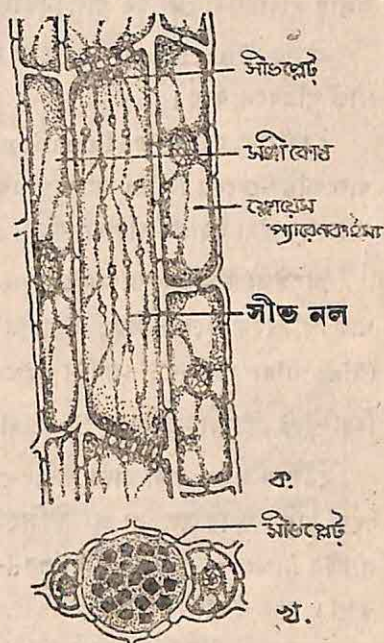 সীভপ্লেট্
সঙ্গীকোষ
ফ্লোয়েম
প্যারেনকাইমা
সীভ নল
ক.
সীভপ্লেট্
খ.